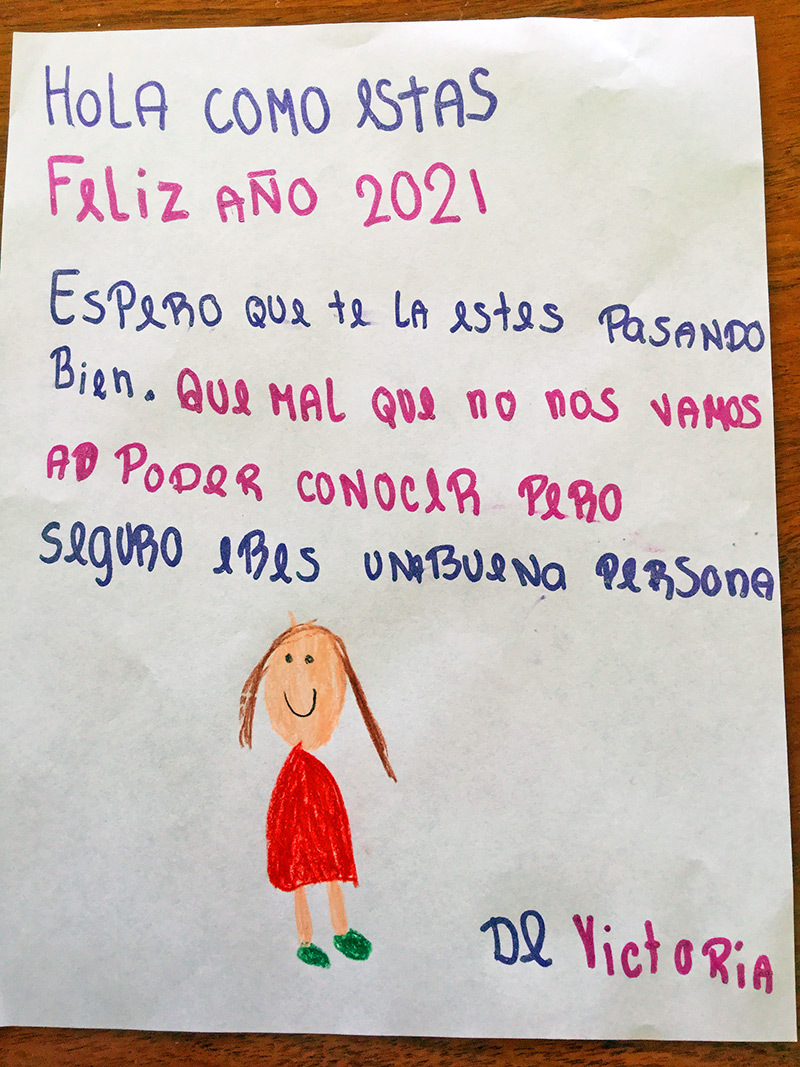 HOLA COMO eSTAS
FeLiz AÑO 2021
ESPeRO QUe te LA estes PaSANDO
Bien. QUe MAL QUe no nos VAMOS
AD PODeR CONOCeR PeRO
SeGURO eRes UNABUeNa PeRSonA
De VictoRiA